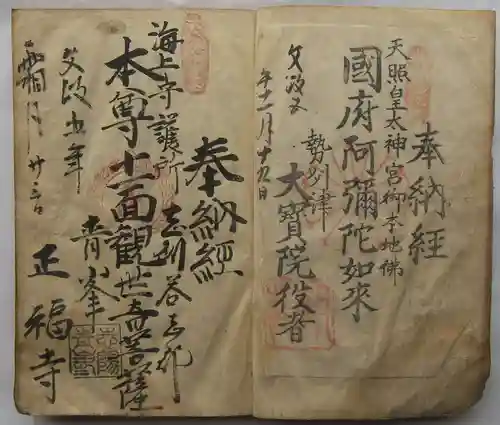 奉納經
天照皇太神宮御本地佛
國府阿彌陀如來
文政五
年十一月十九日
勢州津
大寶院役者
奉納經
志州答志郡
海上守護所
本尊十一面觀世音菩薩
文政五年
霜月廿日
青峯
正福寺